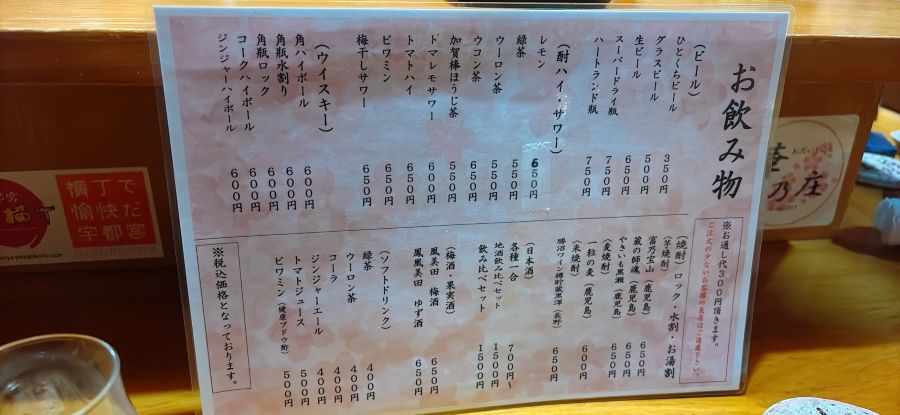 お飲み物
(ビール)
ひとくちビール 350円
グラスビール 500円
生ビール 650円
スーパードライ瓶 750円
ハートランド瓶 750円
(酎ハイ・サワー)
レモン 550円
緑茶 550円
ウーロン茶 550円
ウコン茶 650円
加賀棒ほうじ茶 550円
トマレモサワー 600円
トマトハイ 650円
ビワミン 650円
梅干しサワー 650円
(ウイスキー)
角ハイボール 600円
角瓶水割り 600円
角瓶ロック 600円
コークハイボール 600円
ジンジャーハイボール 600円
※お通し代300円頂きます。
ご注文の少ないお客様の長居はご遠慮下さい。
(焼酎) ロック・水割・お湯割
(芋焼酎)
富乃宝山 (鹿児島) 650円
蔵の師魂 (鹿児島) 650円
やきいも黒瀬 (鹿児島) 650円
(麦焼酎)
一粒の麦 (鹿児島) 600円
(米焼酎)
勝沼ワイン樽貯蔵黒澤 (長野) 650円
(日本酒)
各種一合 700円～
地酒飲み比べセット 1500円
飲み比べセット 1500円
(梅酒・果実酒)
鳳凰美田 梅酒 650円
鳳凰美田 ゆず酒 650円
(ソフトドリンク)
緑茶 400円
ウーロン茶 400円
コーラ 400円
ジンジャーエール 400円
トマトジュース 500円
ビワミン (健康ブドウ酢) 500円
※税込価格となっております。
横丁で
愉快だ
宇都宮
乃庄